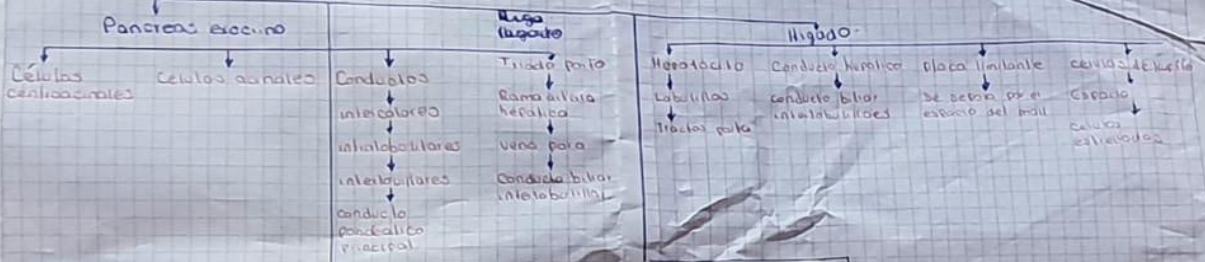 Pancreas exocrino
Higado
hígado
Células
centroacinales
Celulas acinales
Conductos
intercalares
intralobulillares
interlobulillares
conducto
pancreatico
principal
Triada porta
Rama arteria
hepatica
vena porta
Conducto biliar
interlobulillar
Hepatocito
Lobulillos
Tractos porta
Conducto hepatico
conducto biliar
interlobulillares
placa limitante
se separa por el
espacio del mall
celulas de Kupffer
Espacio
celulas
estrelladas